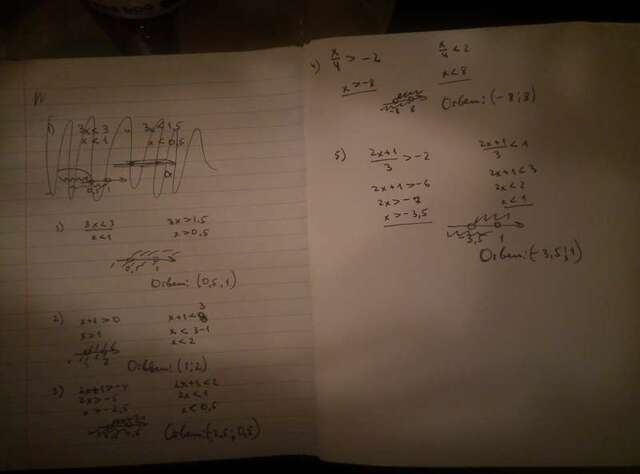 1) 3x<3 3x<1,5
x<1 x<0,5
0,5
1) 3x<3 3x>1,5
x<1 x>0,5
0,5 1
Ответ: (0,5, 1)
2) x+1>0 x+1<3
x>1 x<3-1
x<2
1 2
Ответ: (1; 2)
3) 2x+1>-4 2x+1<2
2x>-5 2x<1
x>-2,5 x<0,5
-2,5 0,5
Ответ: (-2,5; 0,5)
4) x/4 > -2 x/4 < 2
x>-8 x<8
-8 8
Ответ: (-8; 8)
5) 2x+1/3 > -2 2x+1/3 < 1
2x+1>-6 2x+1<3
2x>-7 2x<2
x>-3,5 x<1
-3,5 1
Ответ: (-3,5; 1)